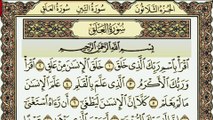 الجزء الثلاثون سورة التين سورة العلق
سورة العلق
بسم الله الرحمن الرحيم
اقرأ باسم ربك الذي خلق ۝ خلق الإنسان من علق ۝ اقرأ
وربك الأكرم ۝ الذي علم بالقلم ۝ علم الإنسان
ما لم يعلم ۝ كلا إن الإنسان ليطغى ۝ أن رآه استغنى